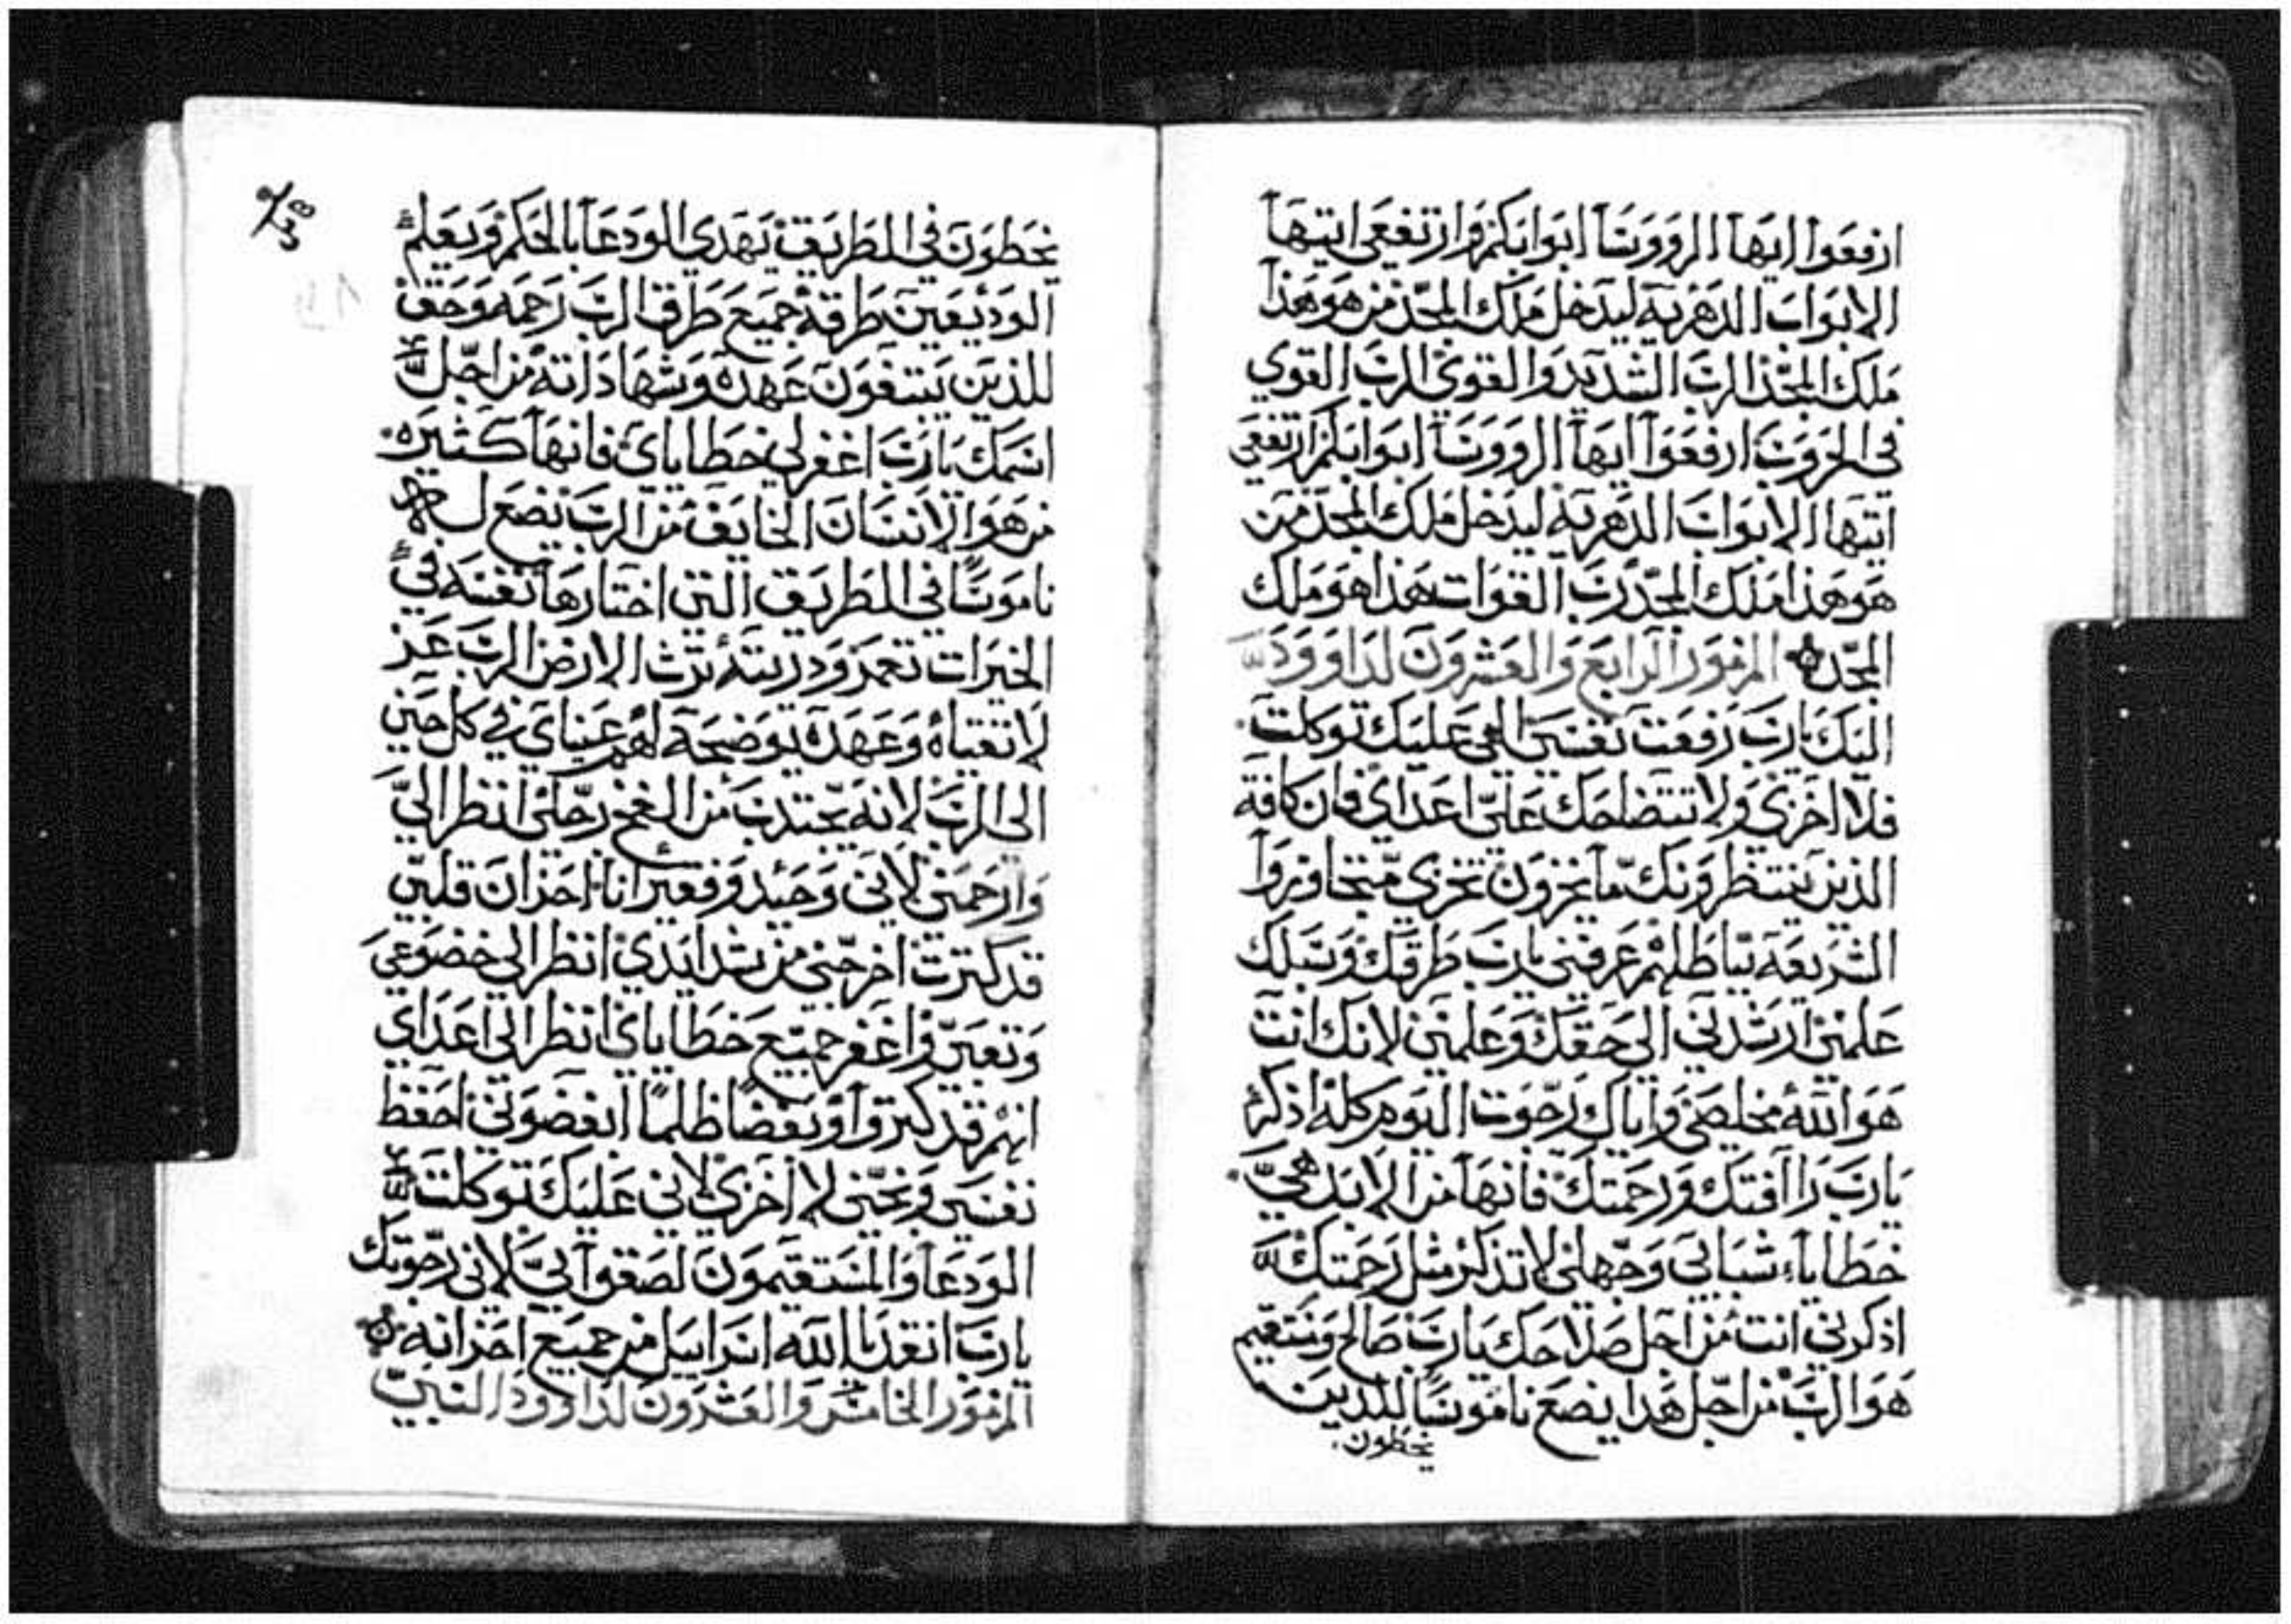 ارفعوا ايها الرووسا ابوابكم وارتفعي ايتها
الابواب الدهرية ليدخل ملك المجد من هو هذا
ملك المجد الرب الشديد والقوي الرب القوي
في الحروب ارفعوا ايها الروسا ابوابكم ارتفعي
ايتها الابواب الدهرية ليدخل ملك المجد من
هو هذا ملك المجد رب القوات هذا هو ملك
المجد المزمور الرابع والعشرون لداوود
اليك يارب رفعت نفسي الهي عليك توكلت
فلا اخزي ولا تتضاحك علي اعداي فان كافة
الذين ينتظرونك ما يخزون تخزي متجاوزوا
الشريعة باطلهم عرفني يارب طرقك وسبلك
علمني ارشدني الى حقك وعلمني لانك انت
هو الله مخلصي واياك رجوت اليوم كله اذكر
يارب راافتك ورحمتك فانها من الابد هي
خطاياء شبابي وجهلي لا تذكر مثل رحمتك
اذكرني انت من اجل صلاحك يارب صالح ومستقيم
هو الرب من اجل هذا يضع ناموسا للذين
يخطون
يخطون في الطريق يهدي الودعا بالحكم ويعلم
الوديعين طرقه جميع طرق الرب رحمه وحق
للذين يبتغون عهده وشهاداته من اجل
اسمك يارب اغفر لي خطاياي فانها كثيره
من هو الانسان الخايف من الرب يضع له
ناموسا في الطريق التي اختارها نفسه في
الخيرات تعمر وذريته ترث الارض الرب عز
لاتقياه وعهده يوضحه لهم عيناي في كل حين
الى الرب لانه يجتذب من الفخ رجلي انظر الي
وارحمني لاني وحيد وفقير انا احزان قلبي
قد كترت اخرجني من شدايدي انظر الي خضوعي
وتعبي واغفر جميع خطاياي انظر الي اعداي
انهم قد كتروا وبغضا ظلما ابغضوني احفظ
نفسي ونجني لا اخزي لاني عليك توكلت
الودعا والمستقيمون لصقوا بي لاني رجوتك
يارب انقد ياالله اسراييل من جميع احزانه
المزمور الخامس والعشرون لداوود النبي